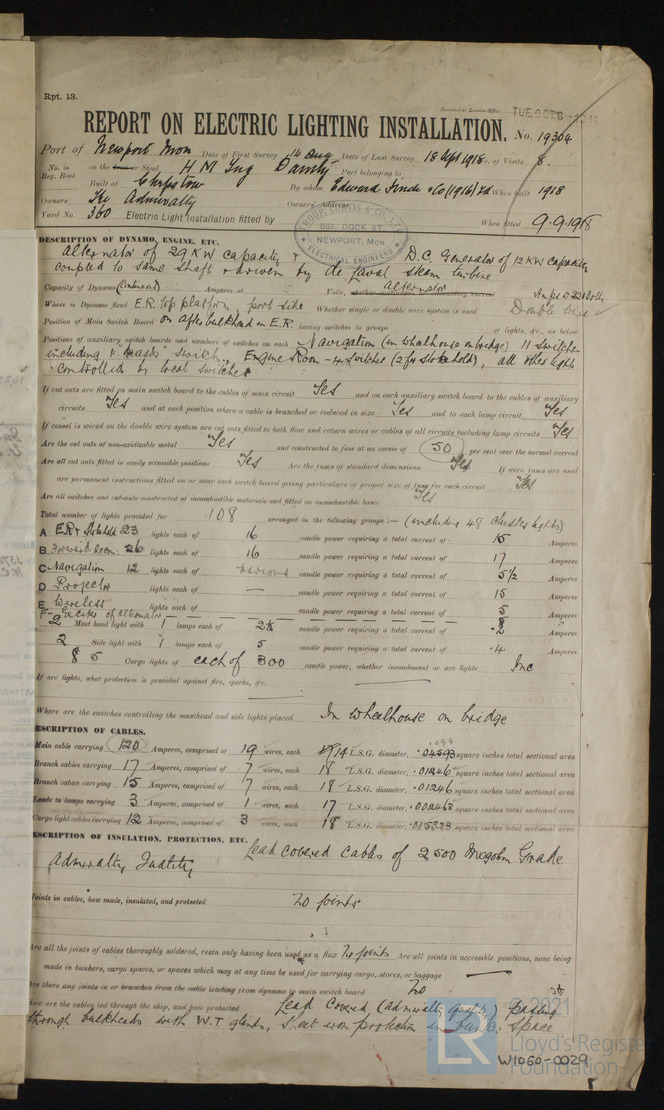 Rpt. 13.
Received at London Office TUE. OCT 8 -
REPORT ON ELECTRIC LIGHTING INSTALLATION. No. 19304
Port of Newport Mon Date of First Survey 14 Aug Date of Last Survey 18 Sept 1918 No. of Visits 8.
No. in Reg. Book on the Iron or Steel H M Tug Dainty Port belonging to
Built at Chepstow By whom Edward Finch & Co (1916) Ld When built 1918
Owners The Admiralty Owners' Address
Yard No. 360 Electric Light Installation fitted by When fitted 9.9.1918
DOCK ST. NEWPORT, Mon. ELECTRICAL ENGINEERS
DESCRIPTION OF DYNAMO, ENGINE, ETC.
Alternator of 29 KW capacity & D.C. Generator of 12 KW capacity
coupled to same shaft & driven by de Laval steam turbine
Capacity of Dynamo Amperes at Volts, whether continuous or alternating current Alternator Amps @ 220 Volts
Where is Dynamo fixed E.R. top platform, port side Whether single or double wire system is used Double wire
Position of Main Switch Board on after bulkhead in E.R. having switches to groups of lights, &c., as below
Positions of auxiliary switch boards and numbers of switches on each Navigation (in wheelhouse on bridge) 11 switches
including 1 master switch, Engine Room - 4 switches (2 for stokehold), all other lights
controlled by local switches
If cut outs are fitted on main switch board to the cables of main circuit Yes and on each auxiliary switch board to the cables of auxiliary
circuits Yes and at each position where a cable is branched or reduced in size Yes and to each lamp circuit Yes
If vessel is wired on the double wire system are cut outs fitted to both flow and return wires or cables of all circuits including lamp circuits Yes
Are the cut outs of non-oxidizable metal Yes and constructed to fuse at an excess of 50 per cent over the normal current
Are all cut outs fitted in easily accessible positions Yes Are the fuses of standard dimensions Yes If wire fuses are used
are permanent instructions fitted on or near each switch board giving particulars of proper size of fuse for each circuit Yes
Are all switches and cut-outs constructed of incombustible materials and fitted on incombustible bases Yes
Total number of lights provided for 108 arranged in the following groups :— (including 48 cluster lights)
A E.R & Stokehold 23 lights each of 16 candle power requiring a total current of 15 Amperes
B Forward Accom: 26 lights each of 16 candle power requiring a total current of 17 Amperes
C Navigation 12 lights each of various candle power requiring a total current of 5 1/2 Amperes
D Projector lights each of — candle power requiring a total current of 15 Amperes
E Wireless lights each of candle power requiring a total current of 5 Amperes
F - Exciter of alternator 8
2 Mast head light with 1 lamps each of candle power requiring a total current of .2 Amperes
2 Side light with 1 lamps each of 5 candle power requiring a total current of .4 Amperes
5 Cargo lights of each of 300 candle power, whether incandescent or arc lights Inc
If arc lights, what protection is provided against fire, sparks, &c. —
Where are the switches controlling the masthead and side lights placed In wheelhouse on bridge
DESCRIPTION OF CABLES.
Main cable carrying 120 Amperes, comprised of 19 wires, each 14 L.S.G. diameter, square inches total sectional area
Branch cables carrying 17 Amperes, comprised of 7 wires, each 18 L.S.G. diameter, .01246 square inches total sectional area
Branch cables carrying 15 Amperes, comprised of 7 wires, each 18 L.S.G. diameter, .01246 square inches total sectional area
Leads to lamps carrying 3 Amperes, comprised of 1 wires, each 17 L.S.G. diameter, .002463 square inches total sectional area
Cargo light cables carrying 12 Amperes, comprised of 3 wires, each 18 L.S.G. diameter, square inches total sectional area
DESCRIPTION OF INSULATION, PROTECTION, ETC. Lead covered cables of 2500 Megohm Grade
Admiralty Quality
Joints in cables, how made, insulated, and protected no joints
Are all the joints of cables thoroughly soldered, resin only having been used as a flux No joints Are all joints in accessible positions, none being
made in bunkers, cargo spaces, or spaces which may at any time be used for carrying cargo, stores, or baggage —
Are there any joints in or branches from the cable leading from dynamo to main switch board no
How are the cables led through the ship, and how protected Lead covered (admiralty quality) passing
through bulkheads with W.T glands, sheet iron protection in bunker space
© 2021
LR Lloyd's Register
Foundation
W1060-0029